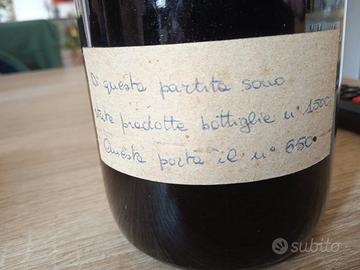 Di questa partita sono
state prodotte bottiglie n° 1500
Questa porta il n° 550.
subito